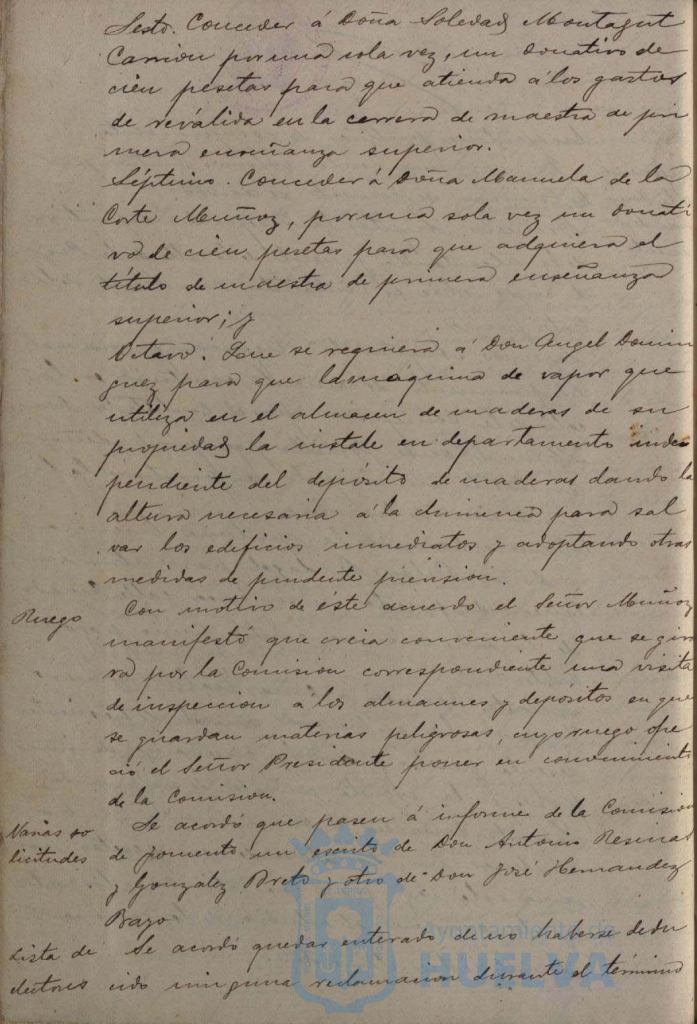 Sesto. Conceder á Doña Soledad Montagut
Carrion por una sola vez, un donativo de
cien pesetas para que atienda a los gastos
de reválida en la carrera de maestra de pri
mera enseñanza superior.
Séptimo. Conceder á Doña Manuela de la
Corte Muñoz, por una sola vez un donati
vo de cien pesetas para que adquiera el
título de maestra de primera enseñanza
superior; y
Octavo. Que se requiera á Don Angel Domin
guez para que la máquina de vapor que
utiliza en el almacen de maderas de su
propiedad la instale en departamento inde
pendiente del depósito de maderas dando la
altura necesaria á la chimenea para sal
var los edificios inmediatos y adoptando otras
medidas de prudente prevision.
Ruego
Con motivo de éste acuerdo el Señor Muñoz
manifestó que creia conveniente que se gira
ra por la Comision correspondiente una visita
de inspeccion á los almacenes y depositos en que
se guardan materias peligrosas, cuyo ruego ofre
ció el Señor Presidente poner en conocimiento
de la Comision.
Varias so
licitudes
Se acordó que pasen á informe de la Comision
de fomento un escrito de Don Antonio Resinas
y Gonzalez Breto y otro de Don José Hernandez
Bayo
Lista de
electores
Se acordó quedar enterado de no haberse dedu
cido ninguna reclamacion durante el término
Ayuntamiento de
HUELVA